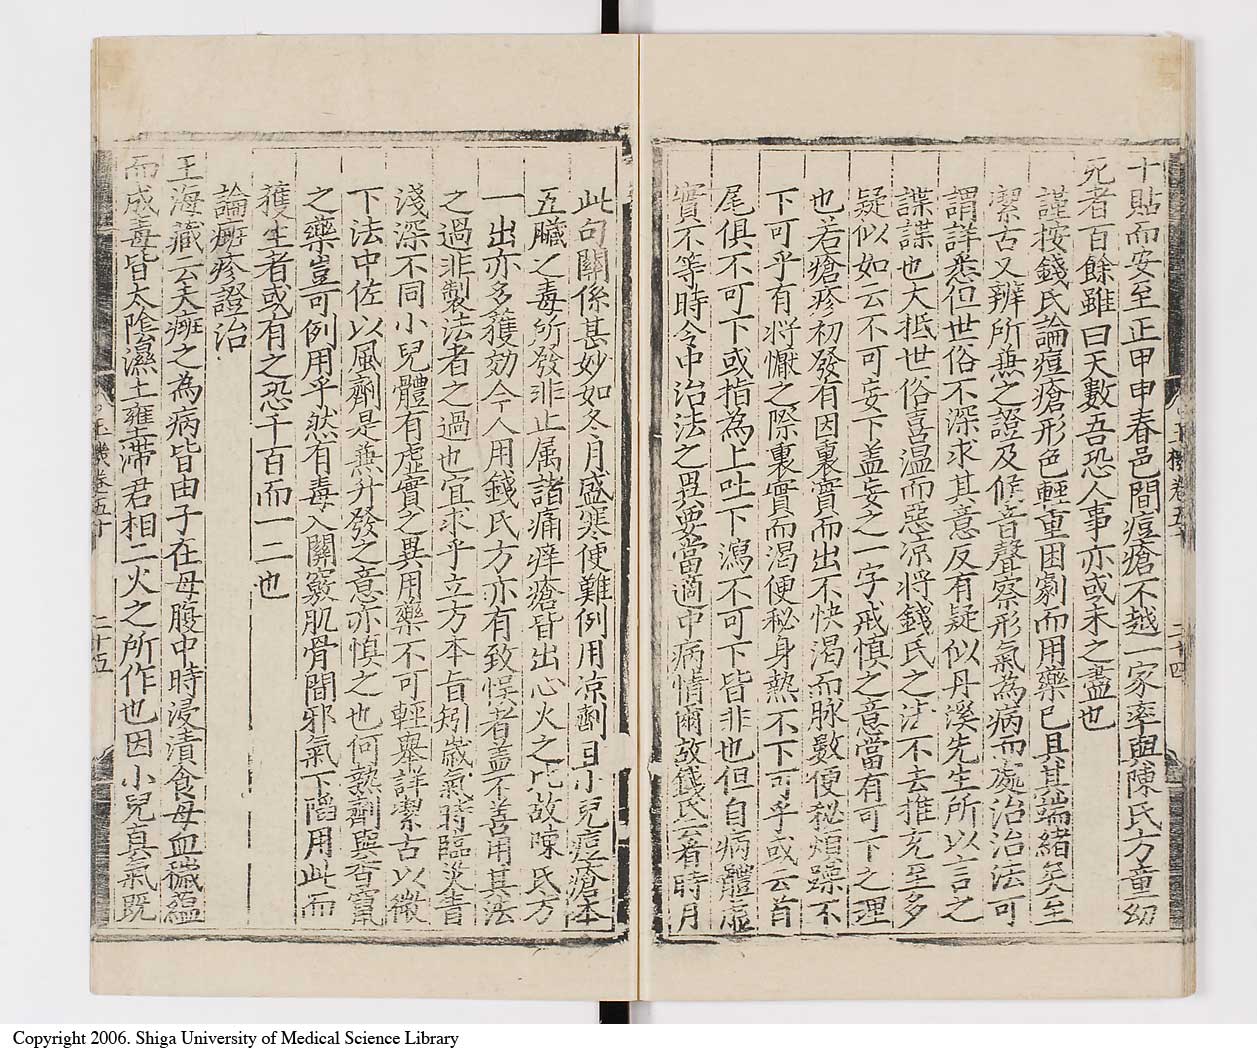 十貼而安至正甲申春邑間痘瘡不越一家率與陳氏方童幼
死者百餘雖曰天數吾恐人事亦或未之盡也
謹按錢氏論痘瘡形色輕重困劇而用藥已具其端緒矣至
潔古又辨所兼之證及候音聲察形氣為病而處治治法可
謂詳悉但世俗不深求其意反有疑似丹溪先生所以言之
諜諜也大抵世俗喜温而惡凉將錢氏之法不去推充至多
疑似如云不可妄下盖妄之一字戒慎之意當有可下之理
也若瘡疹初發有因裏實而出不快渴而脉數便秘煩躁不
下可乎有將㾕之際裏實而渴便秘身熱不下可乎或云首
尾俱不可下或指為上吐下瀉不可下皆非也但自病體虛
實不等時令中治法之異要當適中病情爾故錢氏云看時月
此句關係甚妙如冬月盛寒便難例用凉劑且小兒痘瘡本
五臟之毒所發非止属諸痛痒瘡皆出心火之比故陳氏方
一出亦多獲効今人用錢氏方亦有致悞者盖不善用其法
之過非製法者之過也宜求乎立方本旨矧歲氣時臨災眚
淺深不同小兒體有虛實之異用藥不可輕舉詳潔古以微
下法中佐以風劑是兼升發之意亦慎之也何熱劑與香竄
之藥豈可例用乎然有毒入關竅肌骨間邪氣下䧟用此而
獲生者或有之恐千百而一二也
論癍疹證治
王海藏云夫癍之為病皆由子在母腹中時浸漬食母血穢蘊
而成毒皆太隂濕土壅滯君相二火之所作也因小兒真氣既
玉機卷五十
二十四
玉機卷五十
二十五
Copyright 2006. Shiga University of Medical Science Library